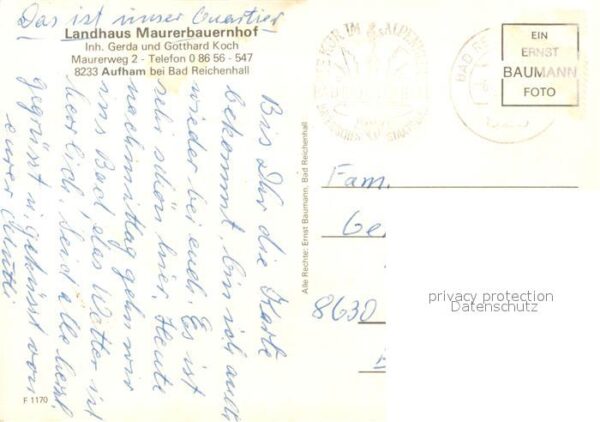 Das ist unser Quartier
Landhaus Maurerbauernhof
Inh. Gerda und Gotthard Koch
Maurerweg 2 - Telefon 0 86 56 - 547
8233 Aufham bei Bad Reichenhall
Bis Ihr die Karte
bekommt, bin ich auch
wieder bei euch. Es ist
sehr schön hier. Heute
nachmittag gehn wir
ins Bad, das Wetter ist
herrlich. Seid alle herzl.
gegrüsst u. geküsst von
eurer Mutti
F 1170
Alle Rechte: Ernst Baumann, Bad Reichenhall
BAD REI
EIN
ERNST
BAUMANN
FOTO
Fam.
Ge
8630
privacy protection
Datenschutz